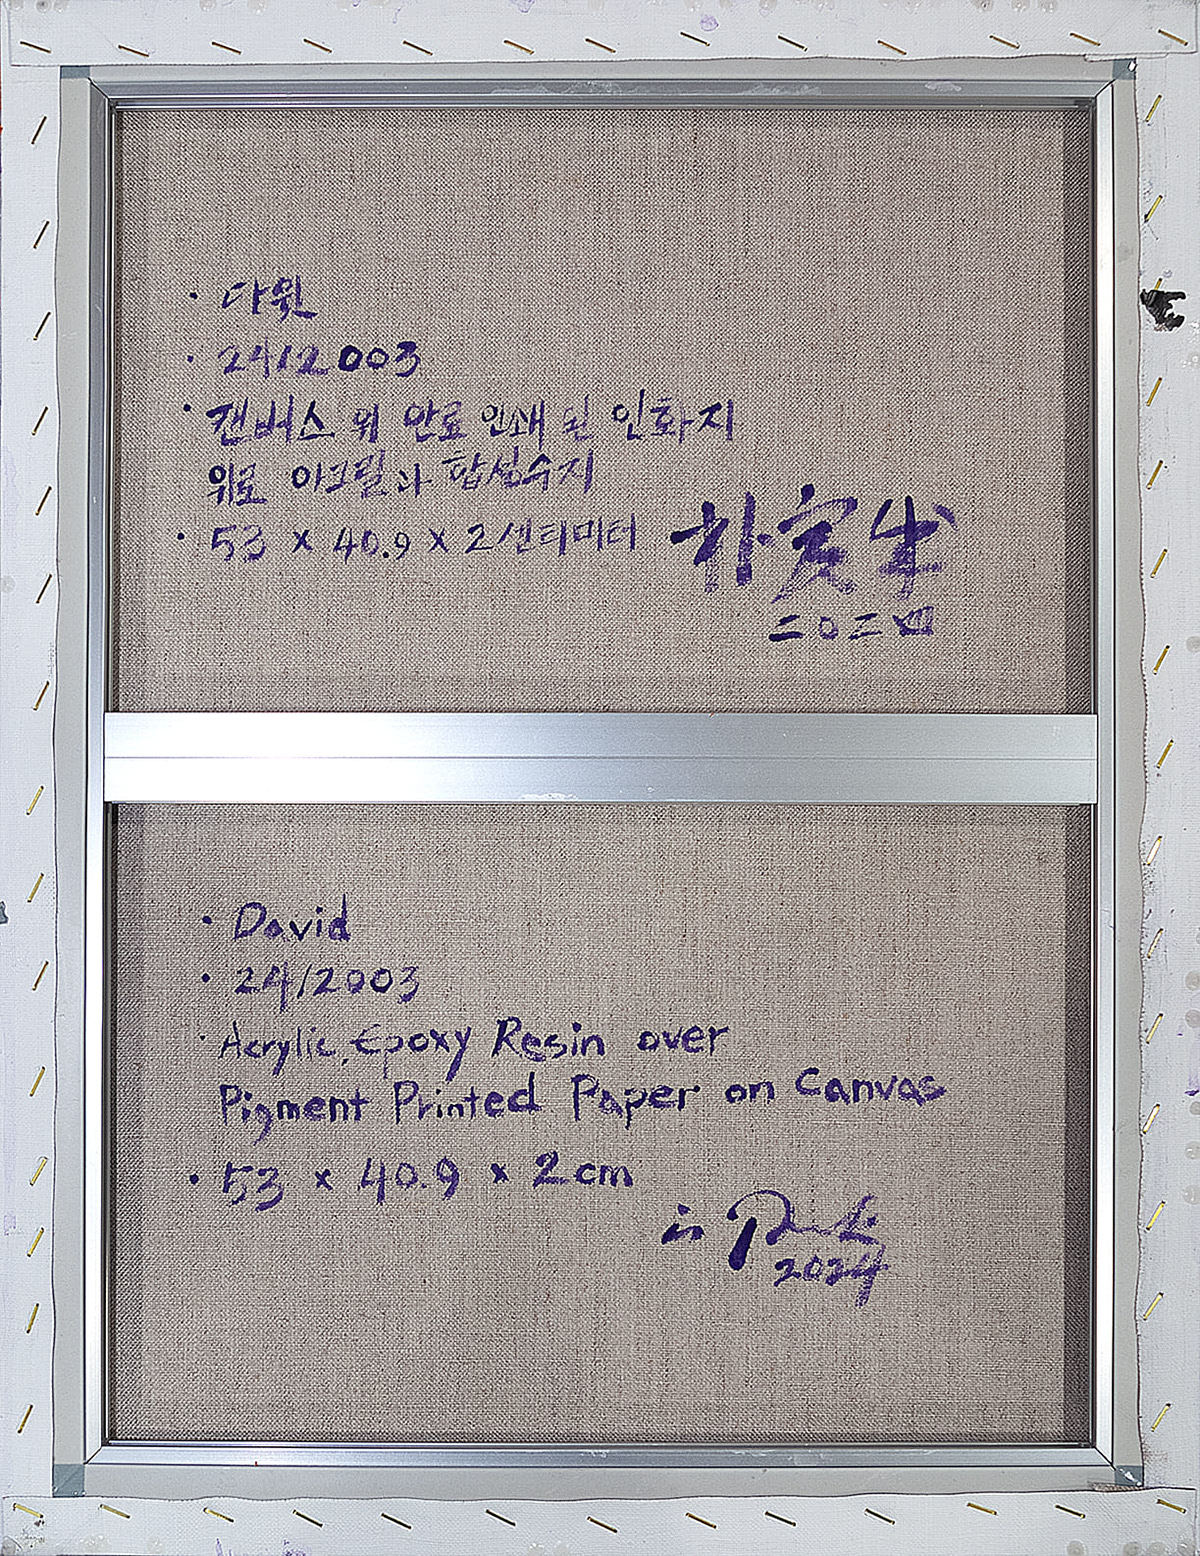 · 다윗
· 24/2003
· 캔버스 위 안료 인쇄 된 인화지
위로 아크릴과 합성수지
· 53 x 40.9 x 2 센티미터
朴寅
二〇二四
· David
· 24/2003
· Acrylic, Epoxy Resin over
Pigment Printed Paper on Canvas
· 53 x 40.9 x 2 cm
in Park
2024